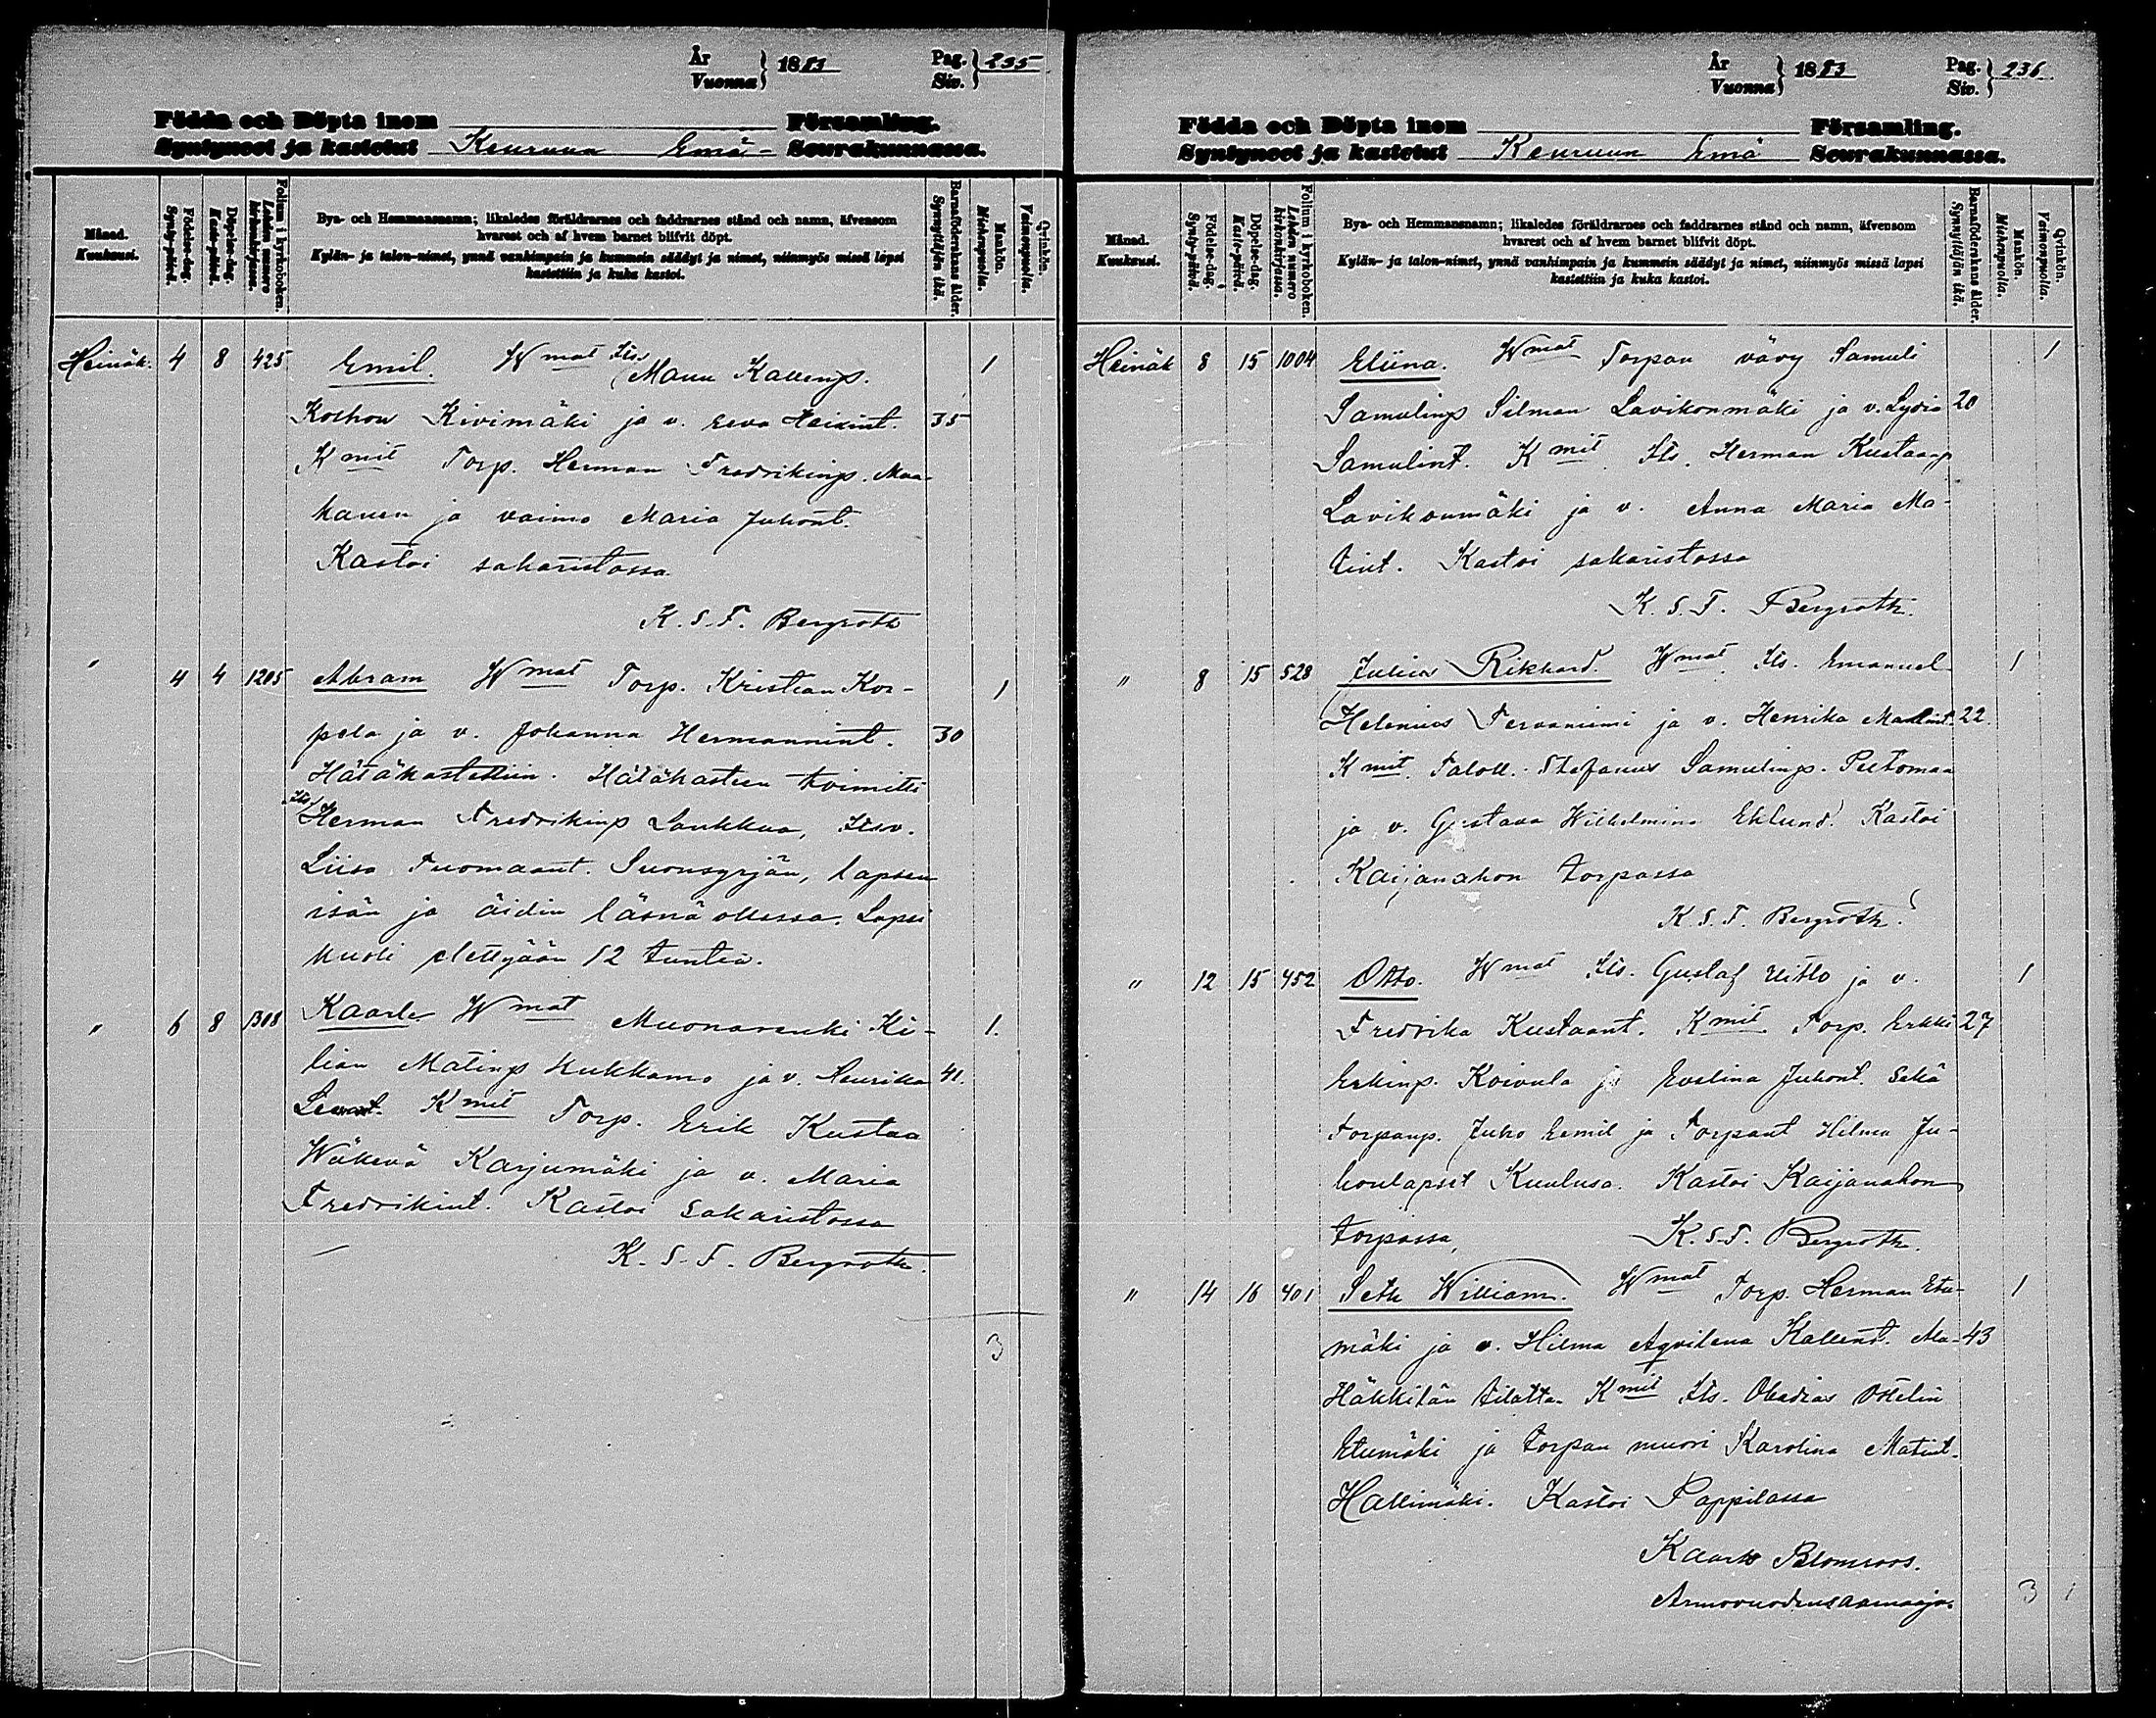 År
Vuonna } 1883 Pag.
Siv. } 235
Födda och Döpta inom Församling.
Syntyneet ja kastetut Keuruun Emä- Seurakunnassa.
Månad.
Kuukausi.
Födelse-dag.
Synty-päivä.
Döpelse-dag.
Kaste-päivä.
Folium i kyrkoboken.
Lehden numero
kirkonkirjassa.
Bya- och Hemmansnamn; likaledes föräldrarnes och faddrarnes stånd och namn, äfvensom
hvarest och af hvem barnet blifvit döpt.
Kylän- ja talon-nimet, ynnä vanhimpain ja kummein säädyt ja nimet, niinmyös missä lapsi
kastettiin ja kuka kastoi.
Barnaföderskans ålder.
Synnyttäjän ikä.
Mankön.
Miehenpuolia.
Qvinkön.
Vaimonpuolia.
Heinäk. 4 8 425 Emil. Wmat Its. Manu Kallenp. 1
Koshon Kivimäki ja v. Eeva Heikint. 35
Kmit Torp. Herman Fredrikinp. Maa-
hanen ja vaimo Maria Juhont.
Kastoi sakaristossa
K. S. F. Bergroth
" 4 4 1205 Abram Wmat Torp. Kristian Kor- 1
pela ja v. Johanna Hermannint. 30
Hätäkastettiin. Hätäkasteen toimitti
Its. Herman Fredrikinp Laukkaa, Itsv.
Liisa Tuomaant. Suonsyrjän, lapsen
isän ja äidin läsnä ollessa. Lapsi
kuoli elettyään 12 tuntia.
" 6 8 1308 Kaarle Wmat Muonarenki Ki- 1.
lian Matinp Kukkamo ja v. Henrika 41.
Kmit Torp. Erik Kustaa
Wäkevä Karjumäki ja v. Maria
Fredrikint. Kastoi Sakaristossa
K. S. F. Bergroth.
3
År
Vuonna } 1883 Pag.
Siv. } 236
Födda och Döpta inom Församling.
Syntyneet ja kastetut Keuruun Emä Seurakunnassa.
Månad.
Kuukausi.
Födelse-dag.
Synty-päivä.
Döpelse-dag.
Kaste-päivä.
Folium i kyrkoboken.
Lehden numero
kirkonkirjassa.
Bya- och Hemmansnamn; likaledes föräldrarnes och faddrarnes stånd och namn, äfvensom
hvarest och af hvem barnet blifvit döpt.
Kylän- ja talon-nimet, ynnä vanhimpain ja kummein säädyt ja nimet, niinmyös missä lapsi
kastettiin ja kuka kastoi.
Barnaföderskans ålder.
Synnyttäjän ikä.
Mankön.
Miehenpuolia.
Qvinkön.
Vaimonpuolia.
Heinäk 8 15 1004 Eliina. Wmat Torpan vävy Samuli 1
Samulinp Silman Lavikonmäki ja v. Lydia 20
Samulint. Kmit. Its. Herman Kustaanp
Lavikonmäki ja v. Anna Maria Ma-
tint. Kastoi sakaristossa
K. S. F. Bergroth.
" 8 15 528 Julius Rikhard. Wmat. Its. Emanuel 1
Helenius Tervaniemi ja v. Henrika Matint. 22.
Kmit. Taloll. Stefanus Samulinp. Peltomaa
ja v. Gustava Wilhelmina Eklund. Kastoi
Kaijanahon torpassa
K. S. F. Bergroth.
" 12 15 452 Otto. Wmat Its. Gustaf Uitto ja v. 1
Fredrika Kustaant. Kmit Torp. Erkki 27
Erkinp. Koivula ja Evelina Juhont. Sekä
Torpanp. Juho Eemil ja Torpant Hilma Ju-
honlapset Kuulusa. Kastoi Kaijanahon
torpassa, K. S. F. Bergroth.
" 14 16 401 Seth William. Wmat Torp. Herman Etu- 1
mäki ja v. Hilma Aqvilena Kallent. Ala- 43
Häkkilän tilatta. Kmit Its. Obadias Ostelin
Etumäki ja torpan muori Karolina Matint.
Hallimäki. Kastoi Pappilassa
Kaarlo Blomroos.
Armovuodensaarnaaja.
3 1